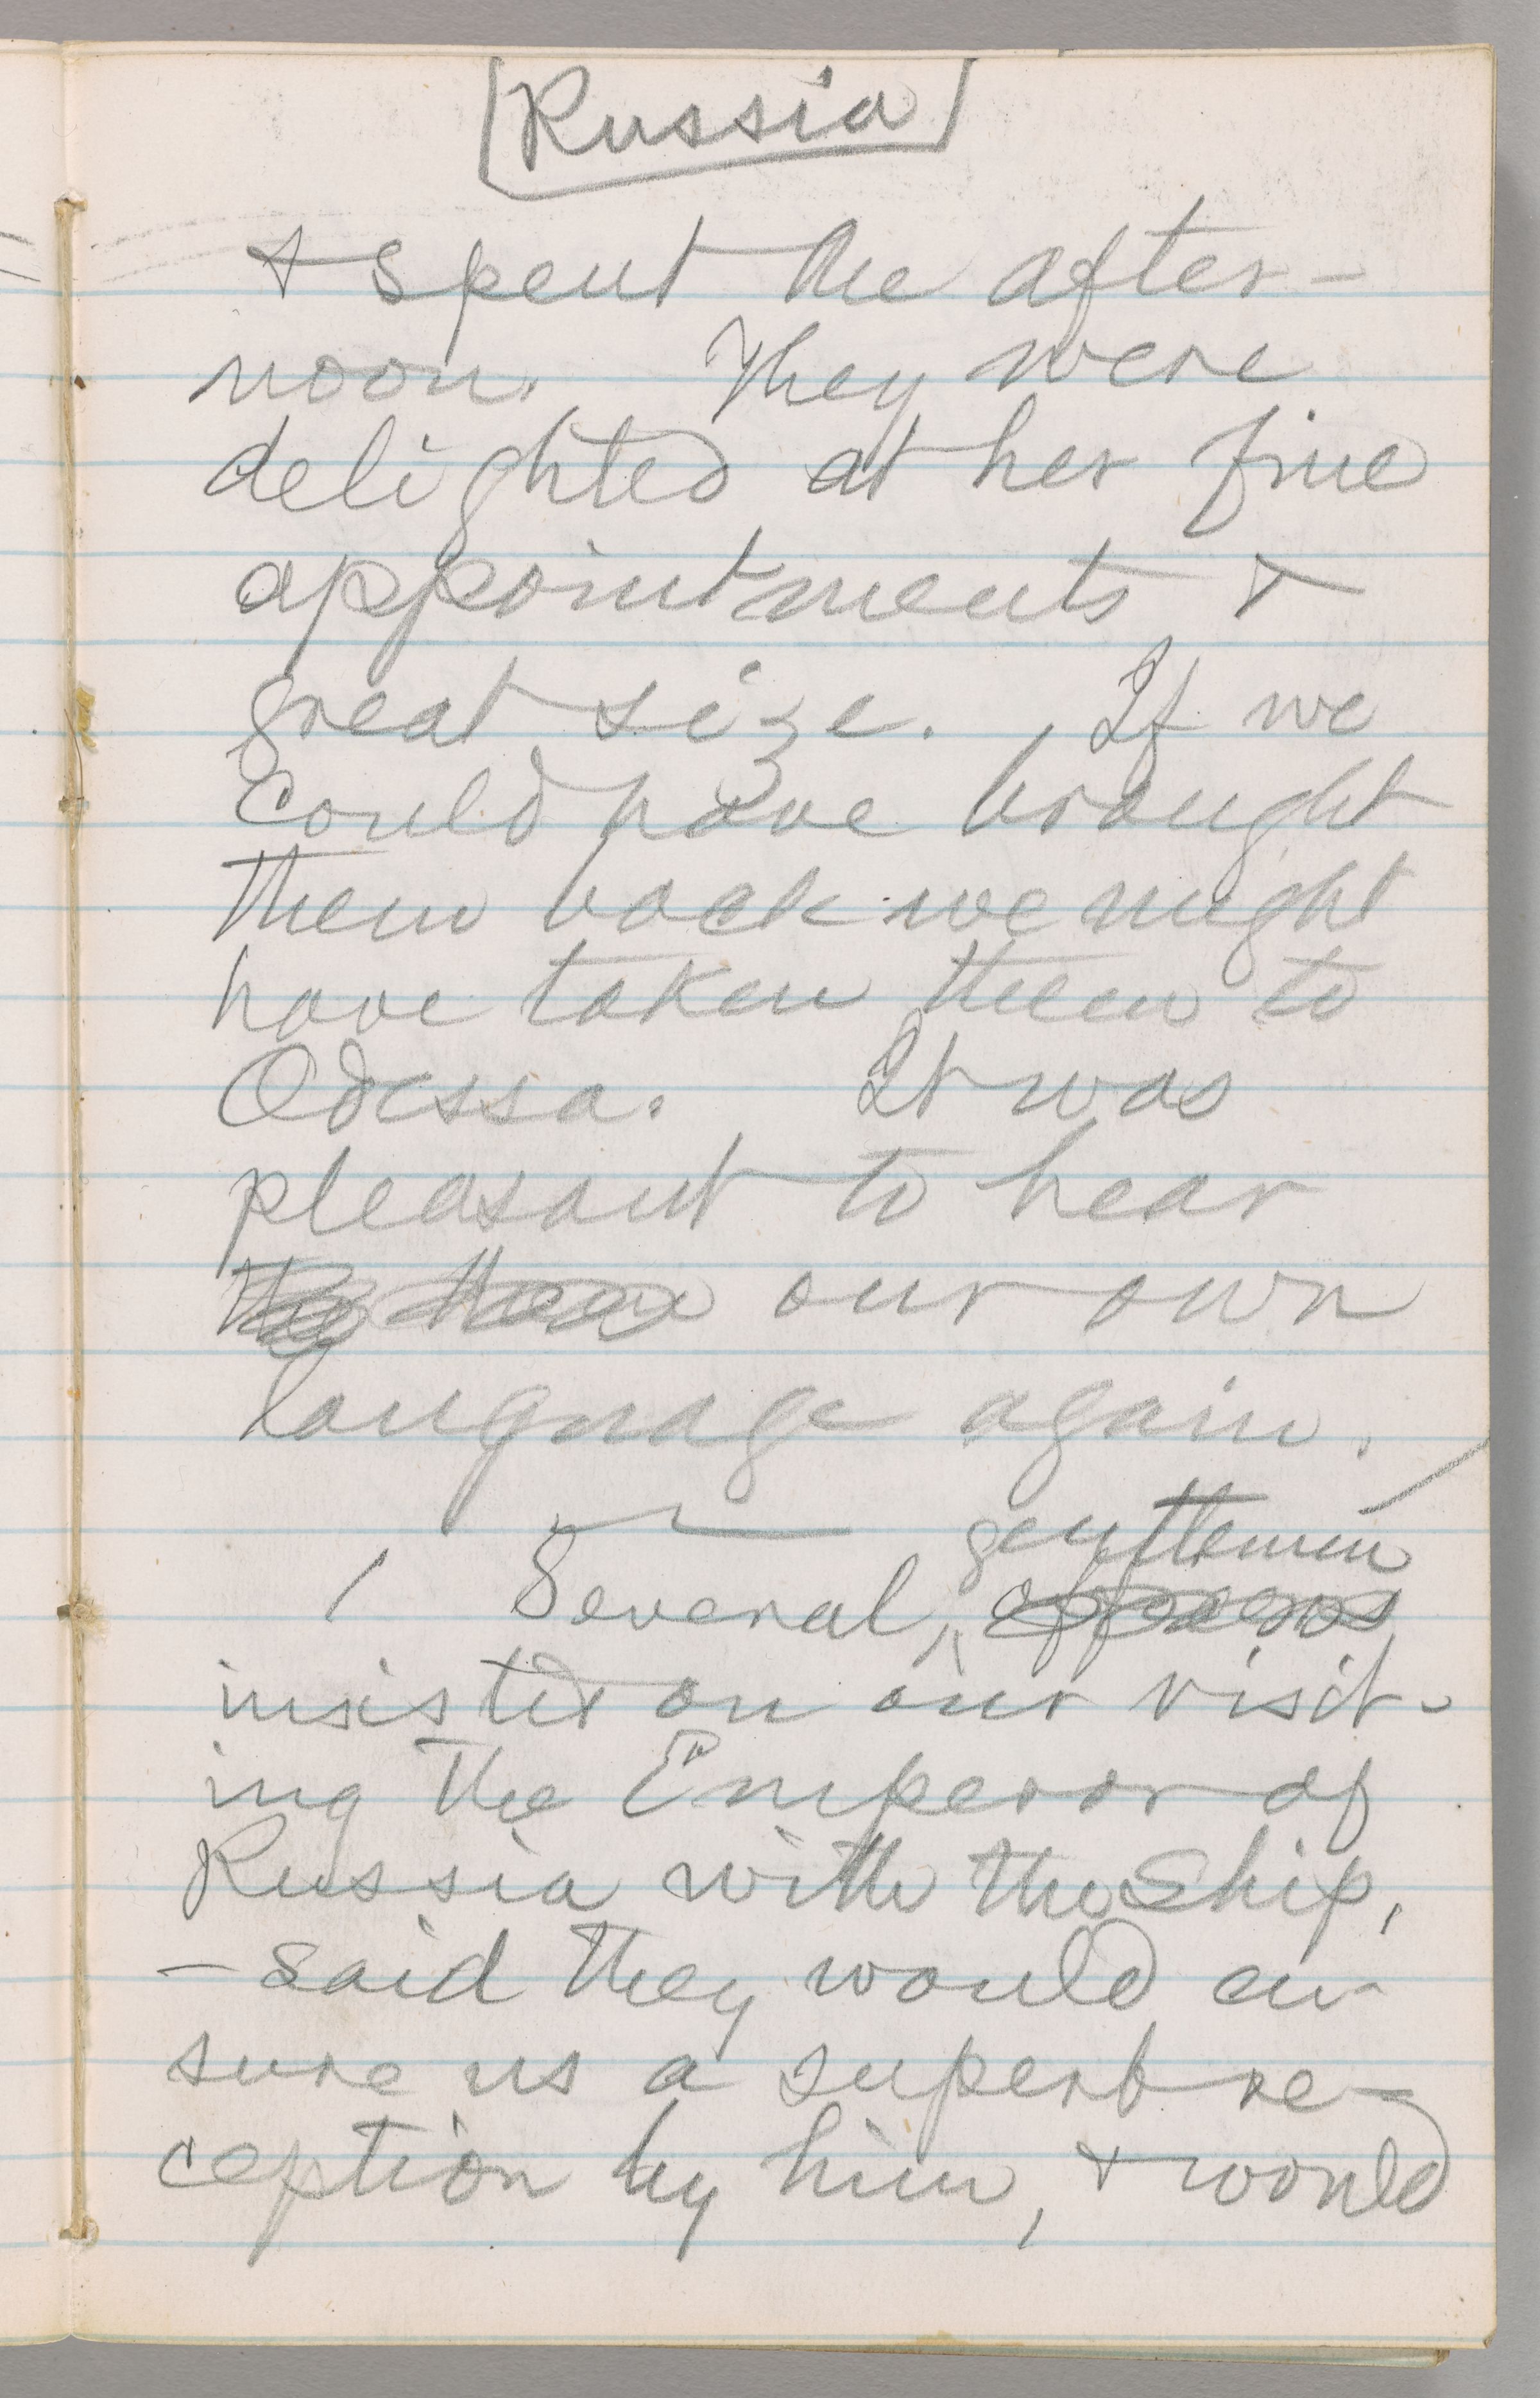 [Russia]
& spent the after-
noon. They were
delighted at her fine
appointments &
great size. If we
could have brought
them back we might
have taken them to
Odessa. It was
pleasant to hear
our own
language again.
gentlemen
Several officers
insisted on our visit-
ing the Emperor of
Russia with the ship,
– said they would en-
sure us a superb re-
ception by him, & would